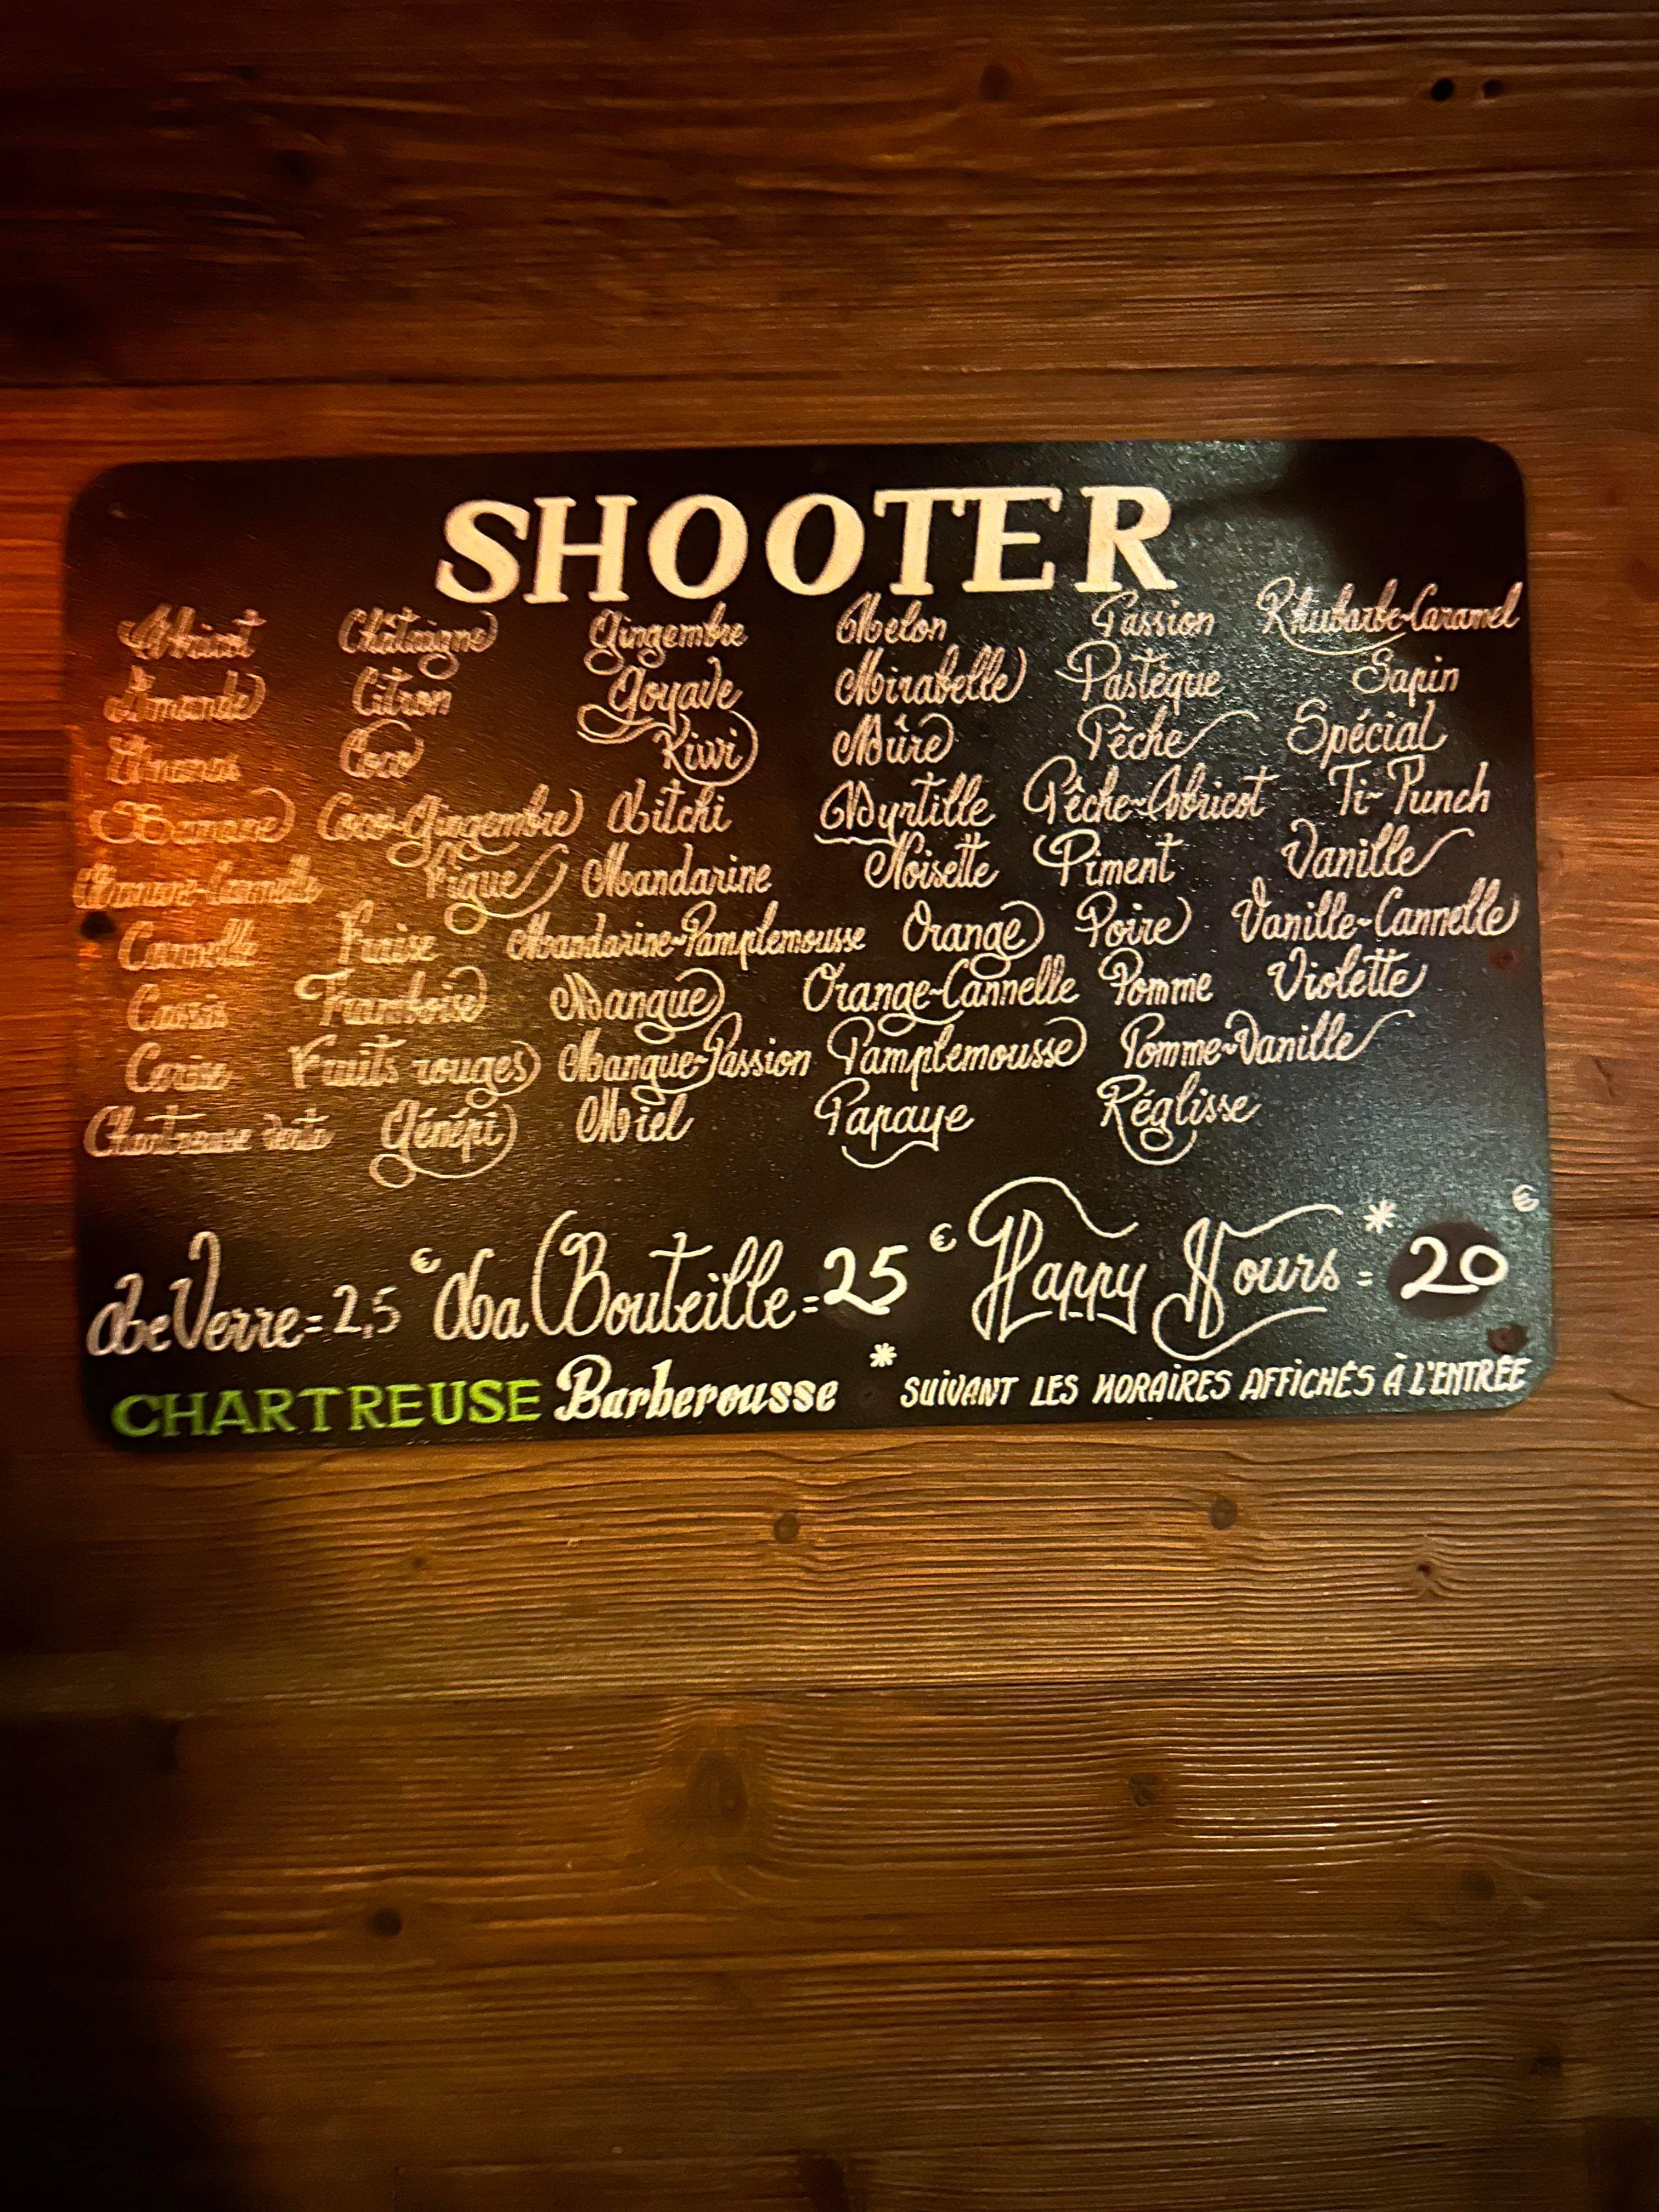 SHOOTER
Abricot Châtaigne Gingembre Melon Passion Rhubarbe-Caramel
Amande Citron Goyave Mirabelle Pastèque Sapin
Ananas Coco Kiwi Mûre Pêche Spécial
Banane Coco-Gingembre Litchi Myrtille Pêche-Abricot Ti-Punch
Banane-Cannelle Figue Mandarine Noisette Piment Vanille
Cannelle Fraise Mandarine-Pamplemousse Orange Poire Vanille-Cannelle
Cassis Framboise Mangue Orange-Cannelle Pomme Violette
Cerise Fruits rouges Mangue-Passion Pamplemousse Pomme-Vanille
Chartreuse Verte Génépi Miel Papaye Réglisse
Le Verre = 2,5 € La Bouteille = 25 € Happy Hours * = 20 €
CHARTREUSE Barberousse * SUIVANT LES HORAIRES AFFICHÉS À L'ENTRÉE